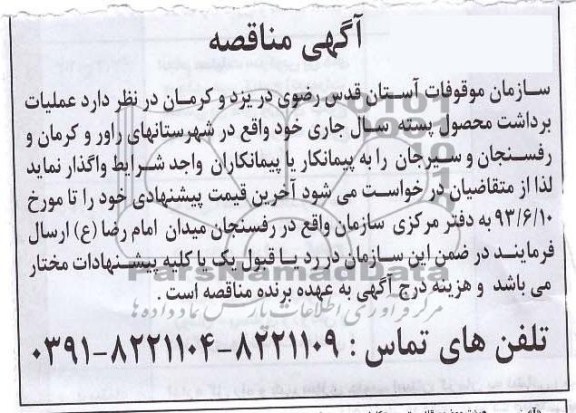 آگهی مناقصه
سازمان موقوفات آستان قدس رضوی در یزد و کرمان در نظر دارد عملیات
برداشت محصول پسته سال جاری خود واقع در شهرستانهای راور و کرمان و
رفسنجان و سیرجان را به پیمانکار یا پیمانکاران واجد شرایط واگذار نماید
لذا از متقاضیان درخواست می شود آخرین قیمت پیشنهادی خود را تا مورخ
۹۳/۶/۱۰ به دفتر مرکزی سازمان واقع در رفسنجان میدان امام رضا (ع) ارسال
فرمایند در ضمن این سازمان در رد یا قبول یک یا کلیه پیشنهادات مختار
می باشد و هزینه درج آگهی به عهده برنده مناقصه است .
ParsNamadData
مرکز فرآوری اطلاعات پارس نماد داده ها
تلفن های تماس : ۸۲۲۱۱۰۹-۸۲۲۱۱۰۴-۰۳۹۱